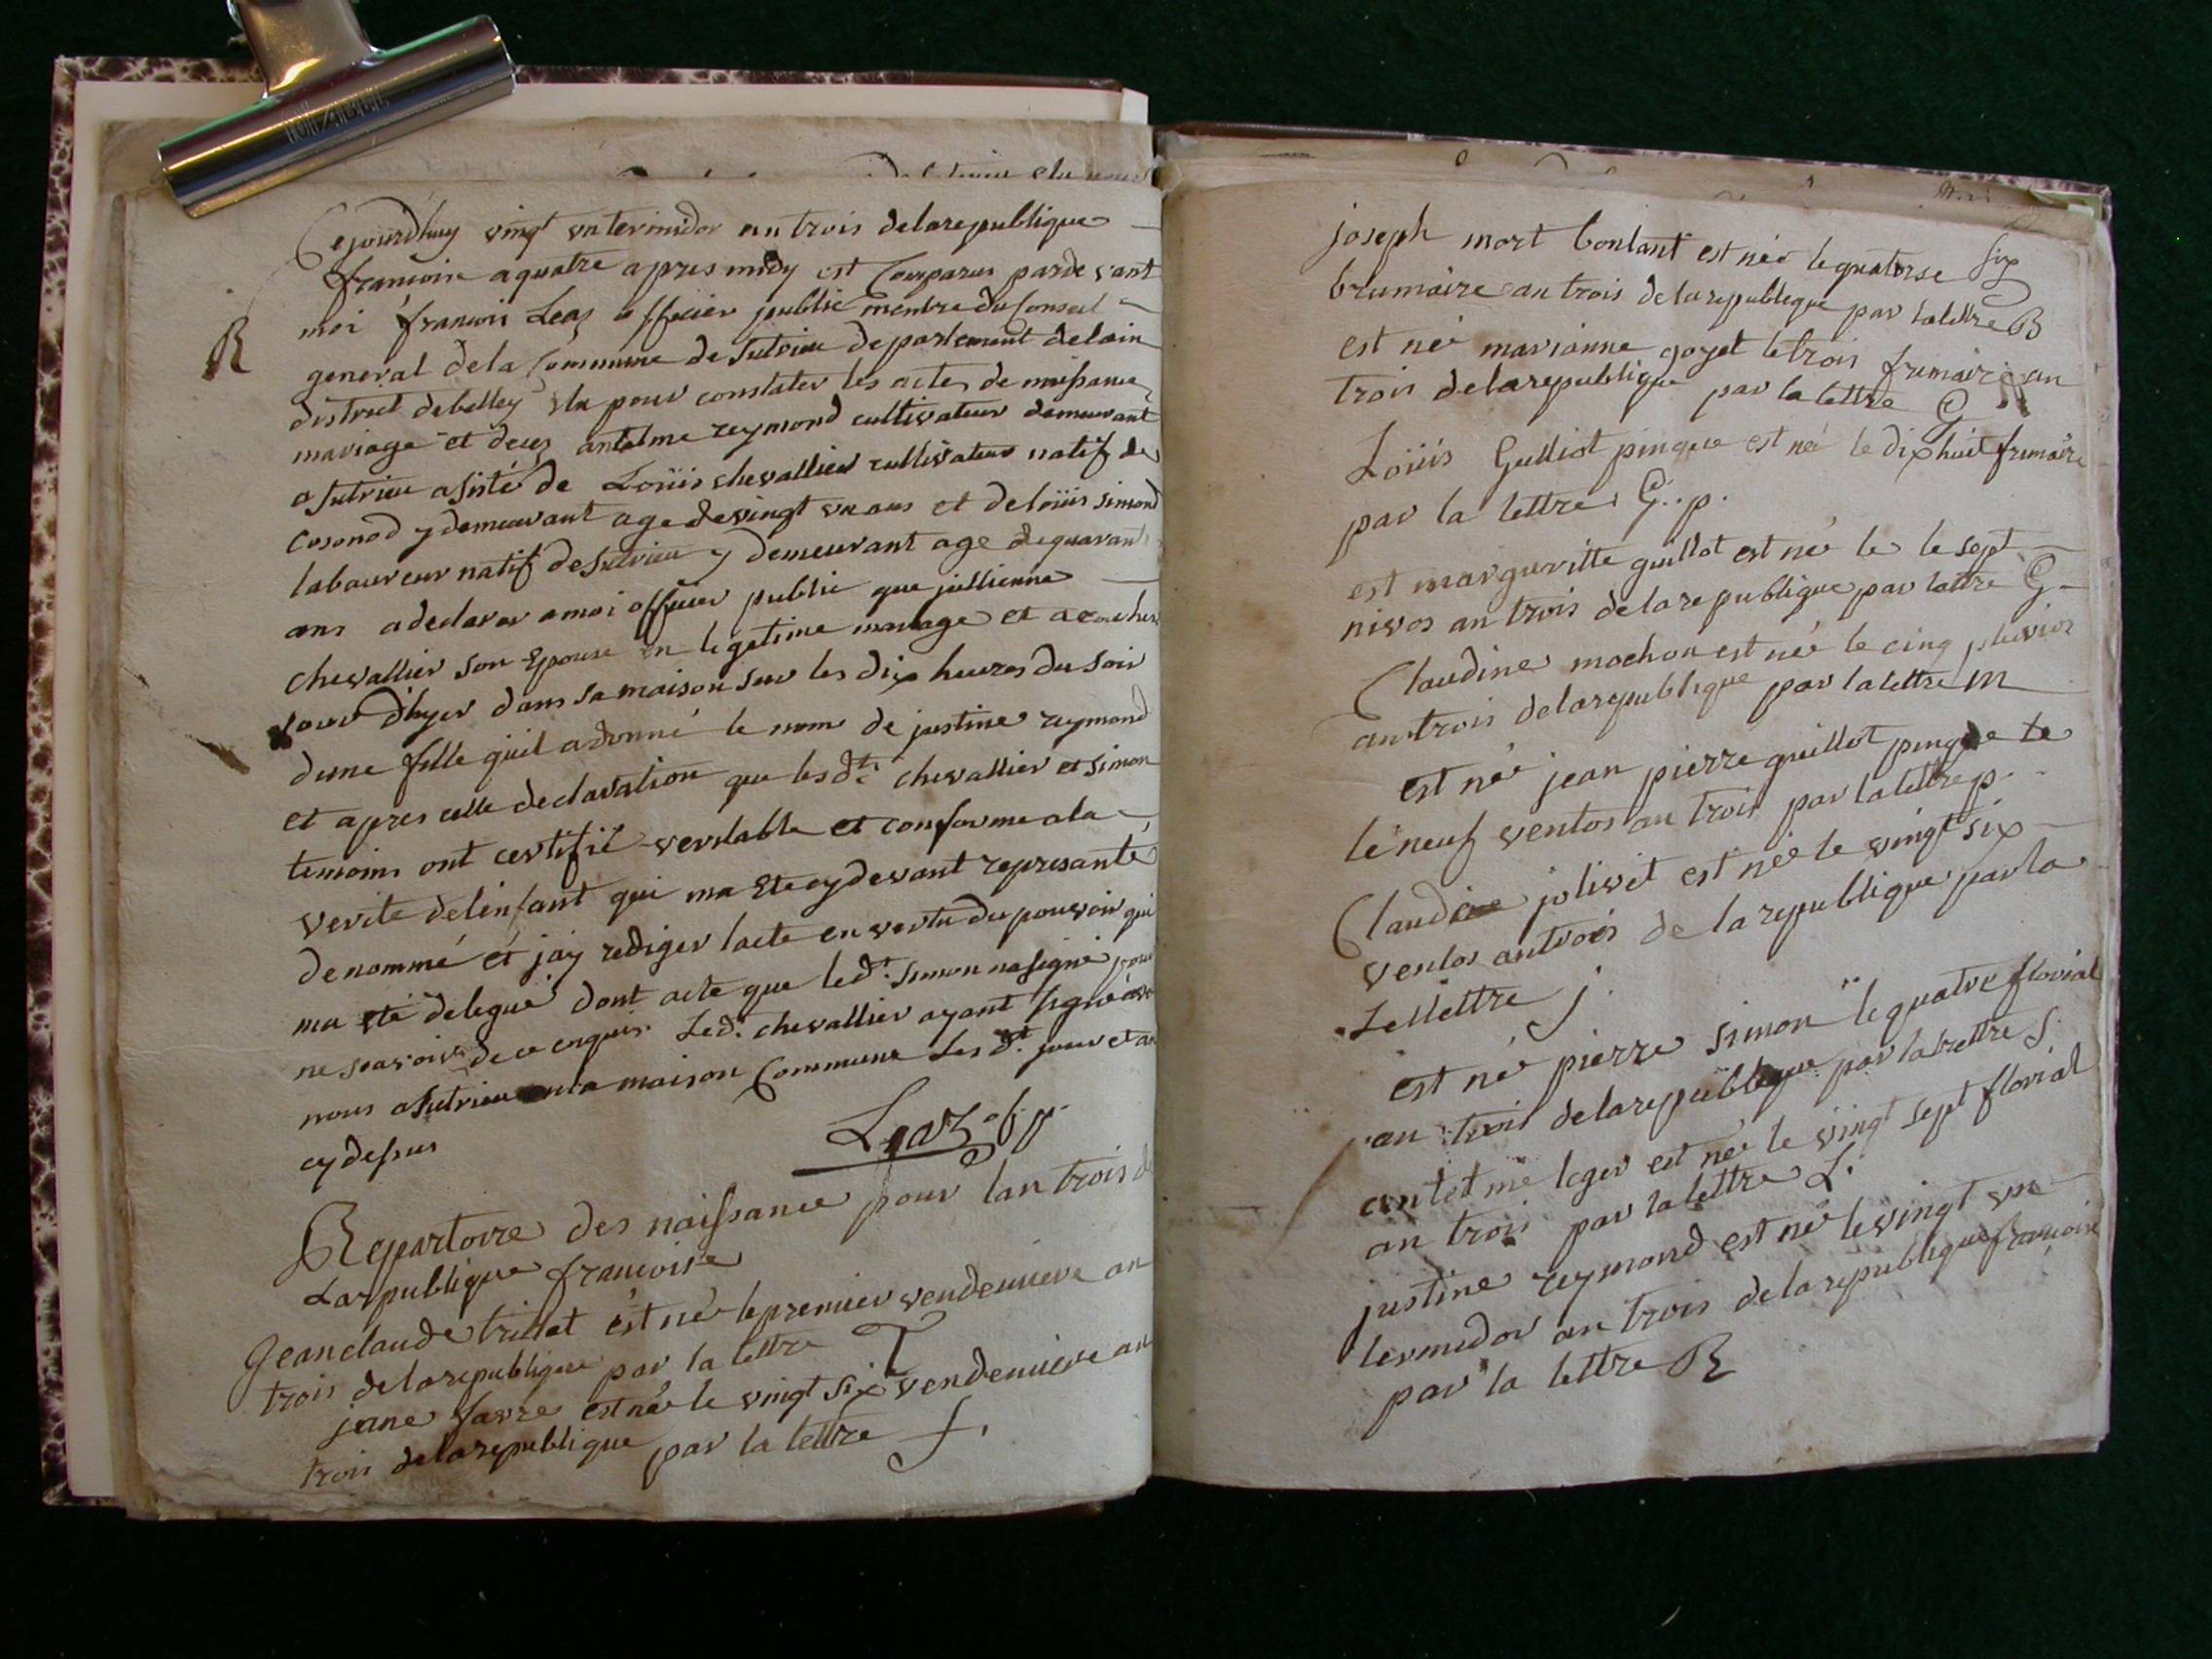 R
Cejourdhuy vingt un termidor an trois delarepublique
francoise a quatre apres midy est Comparus pardevant
moi francois Leaz officier public membre du Conseil
general dela Commune de Sutrieu departement delain
district debelley elu pour constater les actes de naissance
mariage et deces antelme reymond cultivateur demeurant
a Sutrieu assisté de Loüis chevallier cultivateur natif de
y demeurant age devingt un ans et de loüis simond
laboureur natif de Sutrieu y demeurant age dequarant
ans a declarer a moi officier public que jullienne
chevallier son Epouse en legetime mariage et acouchée
jour d'hyer dans sa maison sur les dix heures du soir
dune fille quil a donné le nom de justine reymond
et apres cette declaration que les dts chevallier et simon
temoins ont certifié veritable et conforme ala
verite delenfant qui ma Ete cydevant represanté
denommé et jáy rediger lacte en vertu du pouvoir qui
ma eté delegué dont acte que led. simon na signé pour
ne scavoir de ce enquis. Led. chevallier ayant signé avec
nous a Sutrieu en la maison Commune Les dt jour et an
cy dessus
Leaz of p
Repartoire des naissance pour lan trois de
Larpublique francoise
Jeanclaude trillat est né le premier vendemiere an
trois delarepublique par la lettre T
jane favre est née le vingt six vendemiere an
trois delarepublique par la lettre f.
joseph mort bontant est née le quatorse
brumaire an trois de larepublique par lalettre B
est né marianne goyet le trois frimaire an
trois delarepublique par la lettre G
Loüis Gulliot pingue est né le dix huit frimaire
par la lettre G..p.
est marguritte guillot est né le le sept
nivos an trois delarepublique par lattre G
Claudine mochon est née le cinq pluvios
an trois delarepublique par lalettre m
est né jean pierre guillot pingue le
le neuf ventos an trois par lalettre p.
Claudine jolivet est née le vingt six
ventos antrois de la republique par la
Lellettre j.
est né pierre simon le quatre florial
an trois delarepublique par la lettre S.
antetme leger est né le vingt sept florial
an trois par la lettre L.
justine reymond est né le vingt un
termedor an trois delarepublique francoise
par la lettre R